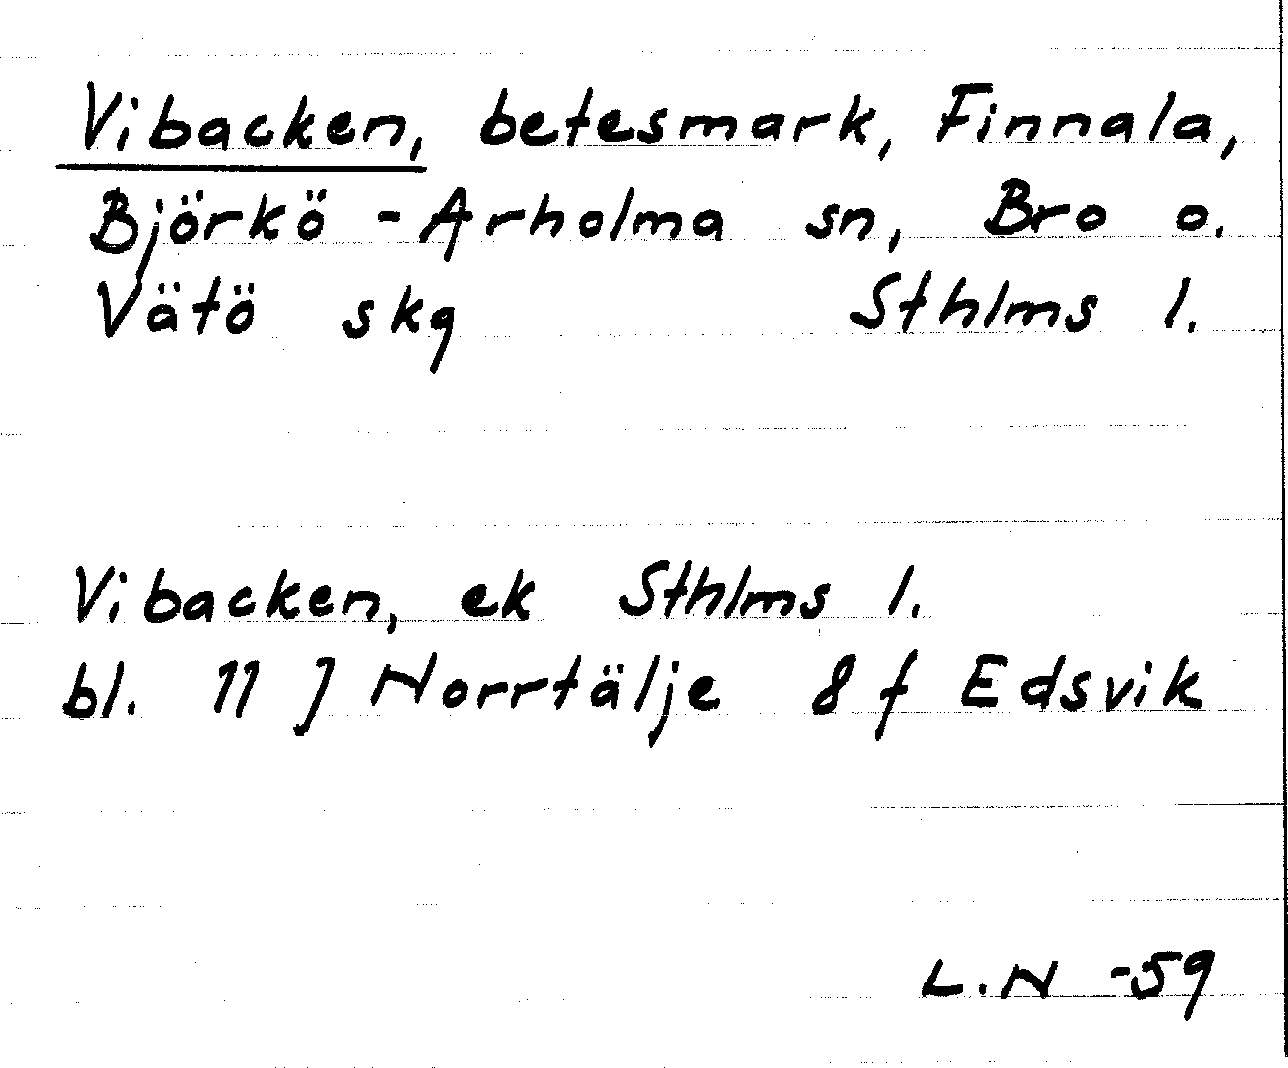 Vibacken, betesmark, Finnala,
Björkö - Arholma sn, Bro o.
Vätö skg Sthlms l.
Vibacken, ek Sthlms l.
bl. 11 J Norrtälje 8 f Edsvik
L.N -59